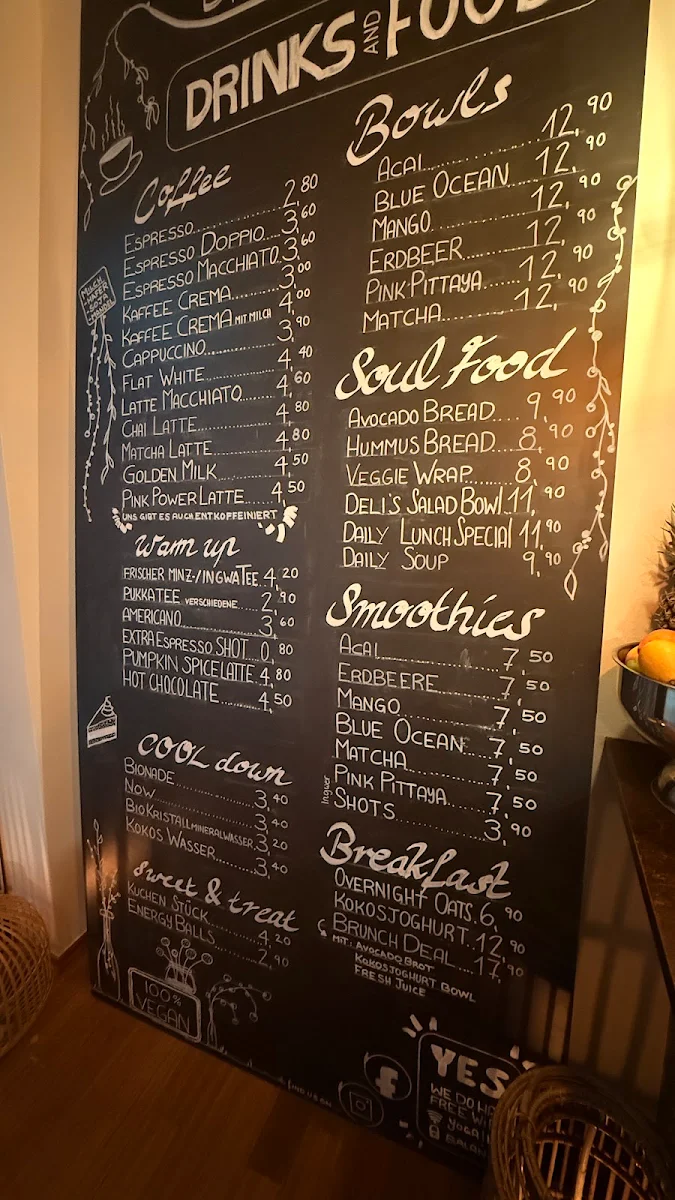 DRINKS AND FOOD
Coffee
ESPRESSO 2,80
ESPRESSO DOPPIO 3,60
ESPRESSO MACCHIATO 3,60
KAFFEE CREMA 3,00
KAFFEE CREMA MIT MILCH 4,00
CAPPUCCINO 3,90
FLAT WHITE 4,40
LATTE MACCHIATO 4,60
CHAI LATTE 4,80
MATCHA LATTE 4,80
GOLDEN MILK 4,50
PINK POWER LATTE 4,50
UNS GIBT ES AUCH ENTKOFFEINIERT
MILCH
HAFER
SOJA
MANDEL
Warm up
FRISCHER MINZ-/INGWATEE 4,20
PUKKATEE VERSCHIEDENE 2,90
AMERICANO 3,60
EXTRA ESPRESSO SHOT 0,80
PUMPKIN SPICE LATTE 4,80
HOT CHOCOLATE 4,50
COOL down
BIONADE 3,40
NOW 3,40
BIO KRISTALLMINERALWASSER 3,20
KOKOS WASSER 3,40
sweet & treat
KUCHEN STÜCK 4,20
ENERGY BALLS 2,90
100%
VEGAN
Bowls
ACAI 12,90
BLUE OCEAN 12,90
MANGO 12,90
ERDBEER 12,90
PINK PITTAYA 12,90
MATCHA 12,90
Soul Food
AVOCADO BREAD 9,90
HUMMUS BREAD 8,90
VEGGIE WRAP 8,90
DELI'S SALAD BOWL 11,90
DAILY LUNCH SPECIAL 11,90
DAILY SOUP 9,90
Smoothies
ACAI 7,50
ERDBEERE 7,50
MANGO 7,50
BLUE OCEAN 7,50
MATCHA 7,50
PINK PITTAYA 7,50
Ingwer SHOTS 3,90
Breakfast
OVERNIGHT OATS 6,90
KOKOSJOGHURT 12,90
BRUNCH DEAL 17,90
MIT: AVOCADO BROT
KOKOSJOGHURT BOWL
FRESH JUICE
YES
WE DO HA
FREE WI
YOGA
BALAN